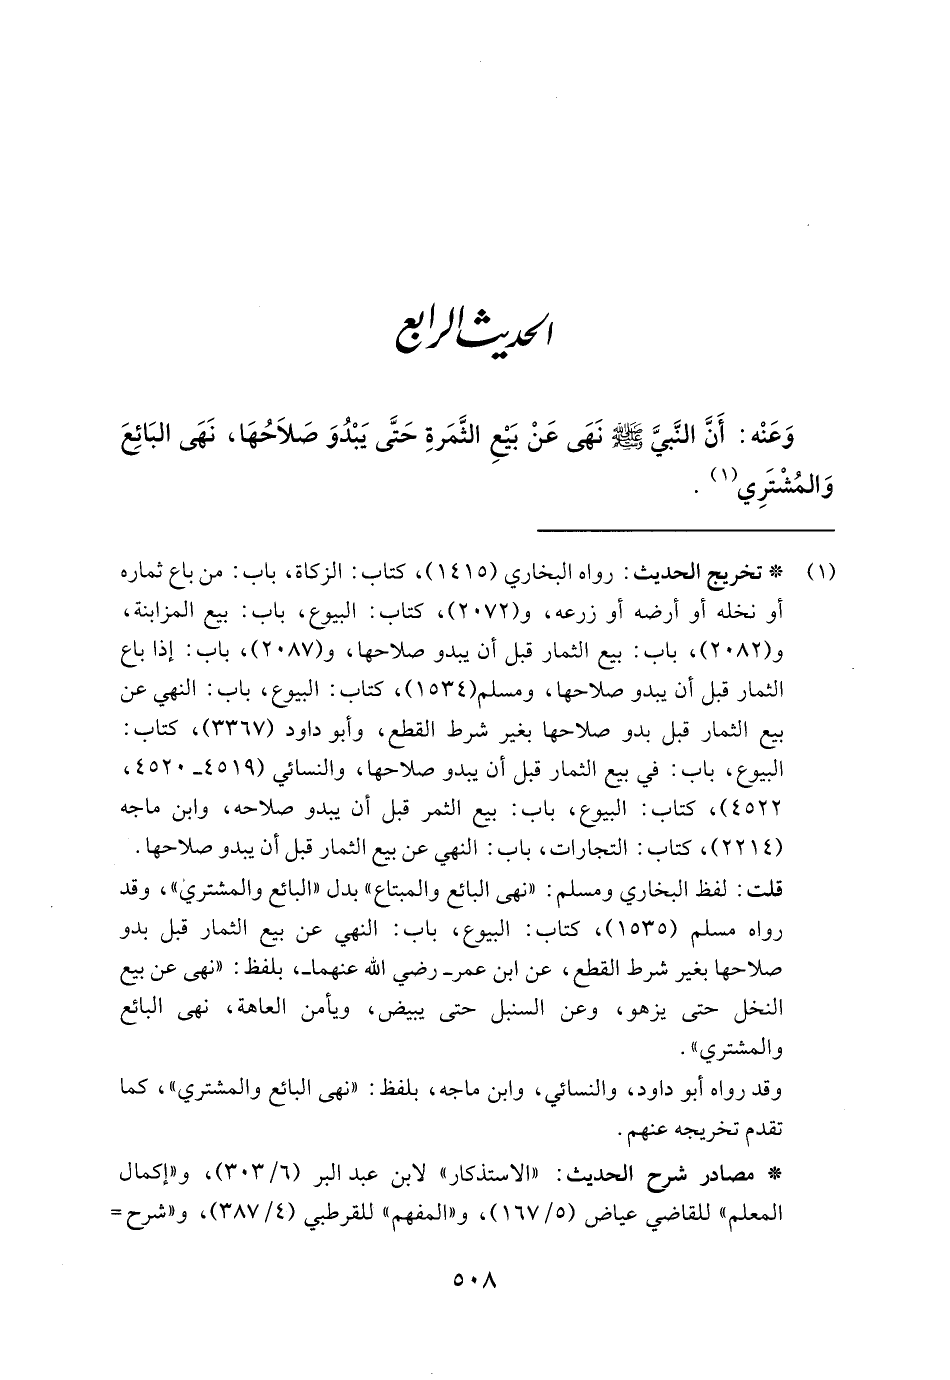 الحديث الرابع
وَعَنْه: أَنَّ النَّبِيَّ ﷺ نَهَى عَنْ بَيْعِ الثَّمَرةِ حَتَّى يَبْدُوَ صَلاَحُهَا، نَهَى البَائِعَ
وَالمُشْتَرِي(١) .
(١) * تخريج الحديث: رواه البخاري (١٤١٥)، كتاب: الزكاة، باب: من باع ثماره
أو نخله أو أرضه أو زرعه، و(٢٠٧٢)، كتاب: البيوع، باب: بيع المزابنة،
و(٢٠٨٢)، باب: بيع الثمار قبل أن يبدو صلاحها، و(٢٠٨٧)، باب: إذا باع
الثمار قبل أن يبدو صلاحها، ومسلم(١٥٣٤)، كتاب: البيوع، باب: النهي عن
بيع الثمار قبل بدو صلاحها بغير شرط القطع، وأبو داود (٣٣٦٧)، كتاب:
البيوع، باب: في بيع الثمار قبل أن يبدو صلاحها، والنسائي (٤٥١٩ـ ٤٥٢٠،
٤٥٢٢)، كتاب: البيوع، باب: بيع الثمر قبل أن يبدو صلاحه، وابن ماجه
(٢٢١٤)، كتاب: التجارات، باب: النهي عن بيع الثمار قبل أن يبدو صلاحها.
قلت: لفظ البخاري ومسلم: «نهى البائع والمبتاع» بدل «البائع والمشتري»، وقد
رواه مسلم (١٥٣٥)، كتاب: البيوع، باب: النهي عن بيع الثمار قبل بدو
صلاحها بغير شرط القطع، عن ابن عمرـ رضي الله عنهماـ، بلفظ: «نهى عن بيع
النخل حتى يزهو، وعن السنبل حتى يبيض، ويأمن العاهة، نهى البائع
والمشتري».
وقد رواه أبو داود، والنسائي، وابن ماجه، بلفظ: «نهى البائع والمشتري»، كما
تقدم تخريجه عنهم.
* مصادر شرح الحديث: «الاستذكار» لابن عبد البر (٦/ ٣٠٣)، و«إكمال
المعلم» للقاضي عياض (٥/ ١٦٧)، و«المفهم» للقرطبي (٤/ ٣٨٧)، و«شرح =
٥٠٨